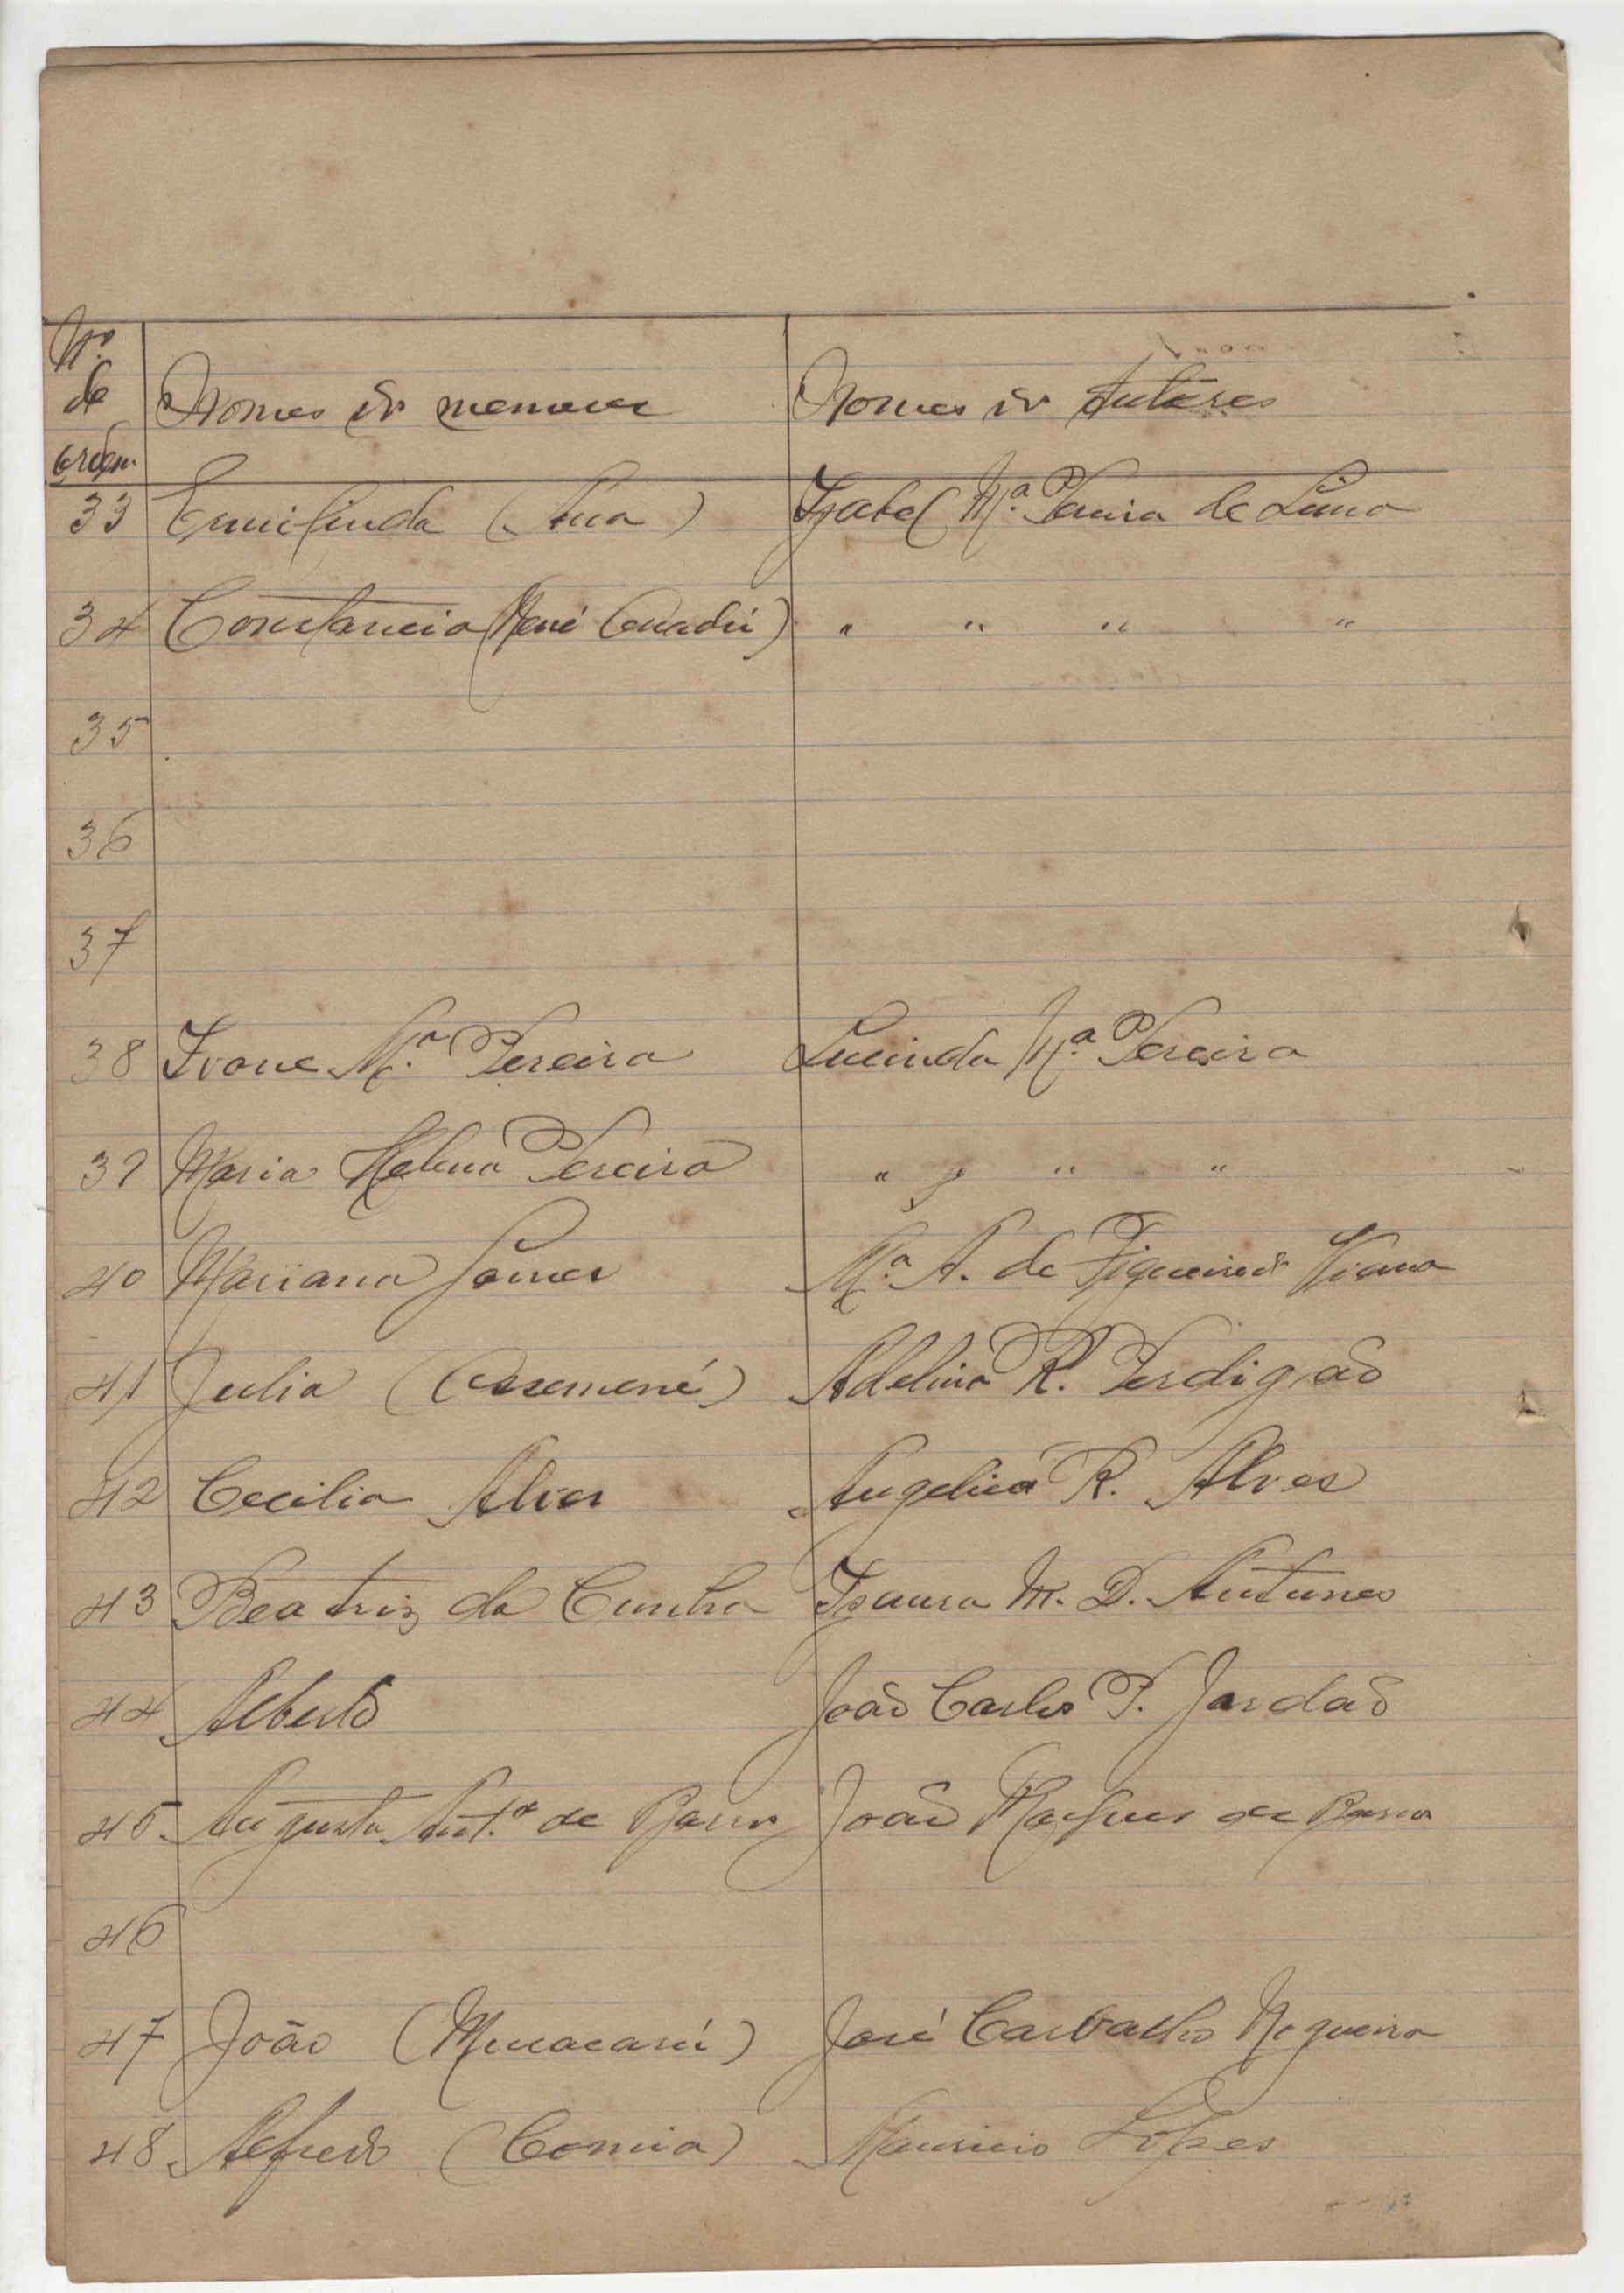 Nº
de
ordem
Nomes dos menores
Nomes dos tutores
33 Ermilinda ( ) Izabel Mª. Pereira de Lima
34 Constancia (René ) " " " "
35
36
37
38 Ivone Mª. Pereira Lucinda Mª. Pereira
39 Maria Helena Pereira " " " "
40 Mariana Gomes Mª. A. de Figueiredo Viana
41 Julia ( ) Adelina R. Perdigão
42 Cecilia Alves Angelica R. Alves
43 Beatriz da Cunha Isaura M. D. Antunes
44 Alberto João Carlos P. Jardão
45 Augusto Antº de Barros João Marques de Barros
46
47 João ( ) José Carvalho Nogueira
48 Alfredo ( ) Mauricio Lopes